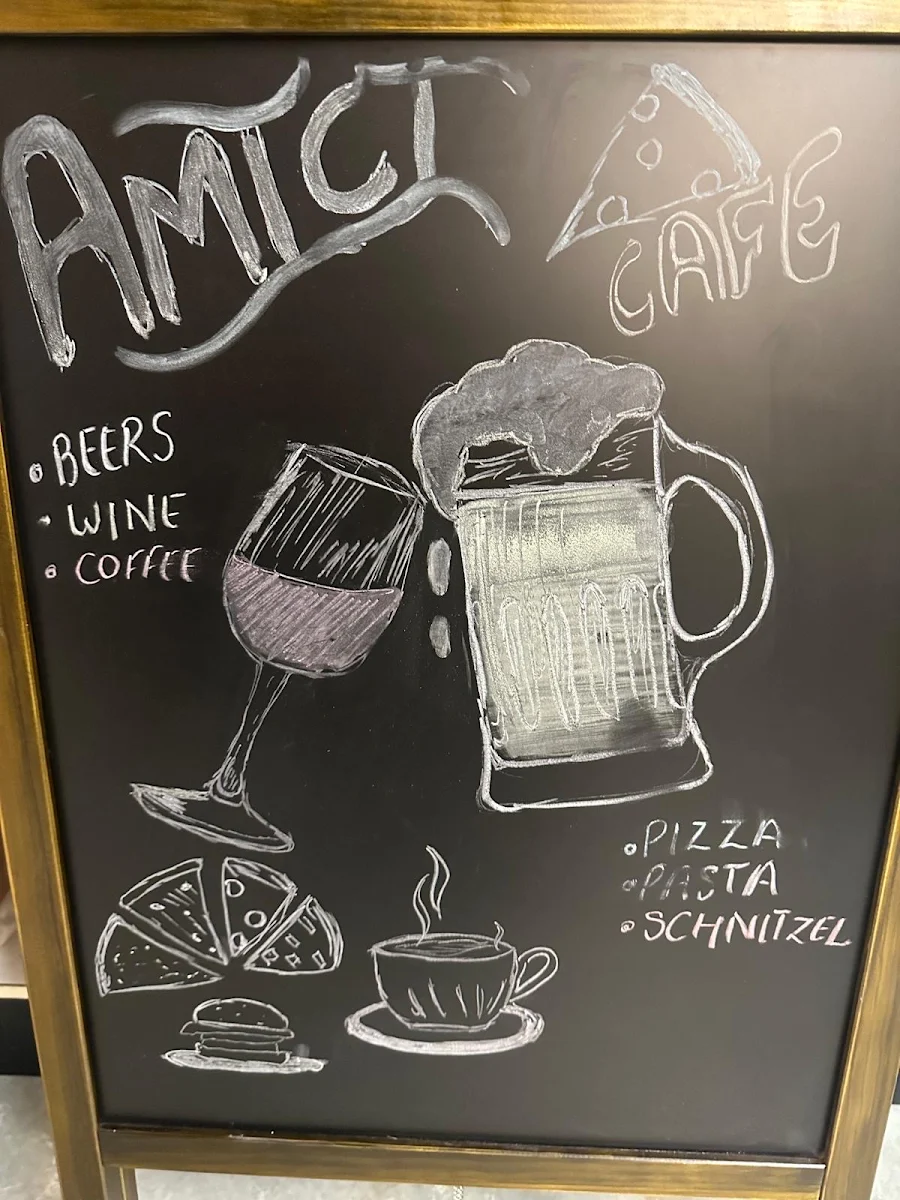 AMICI
CAFE
BEERS
WINE
COFFEE
PIZZA
PASTA
SCHNITZEL